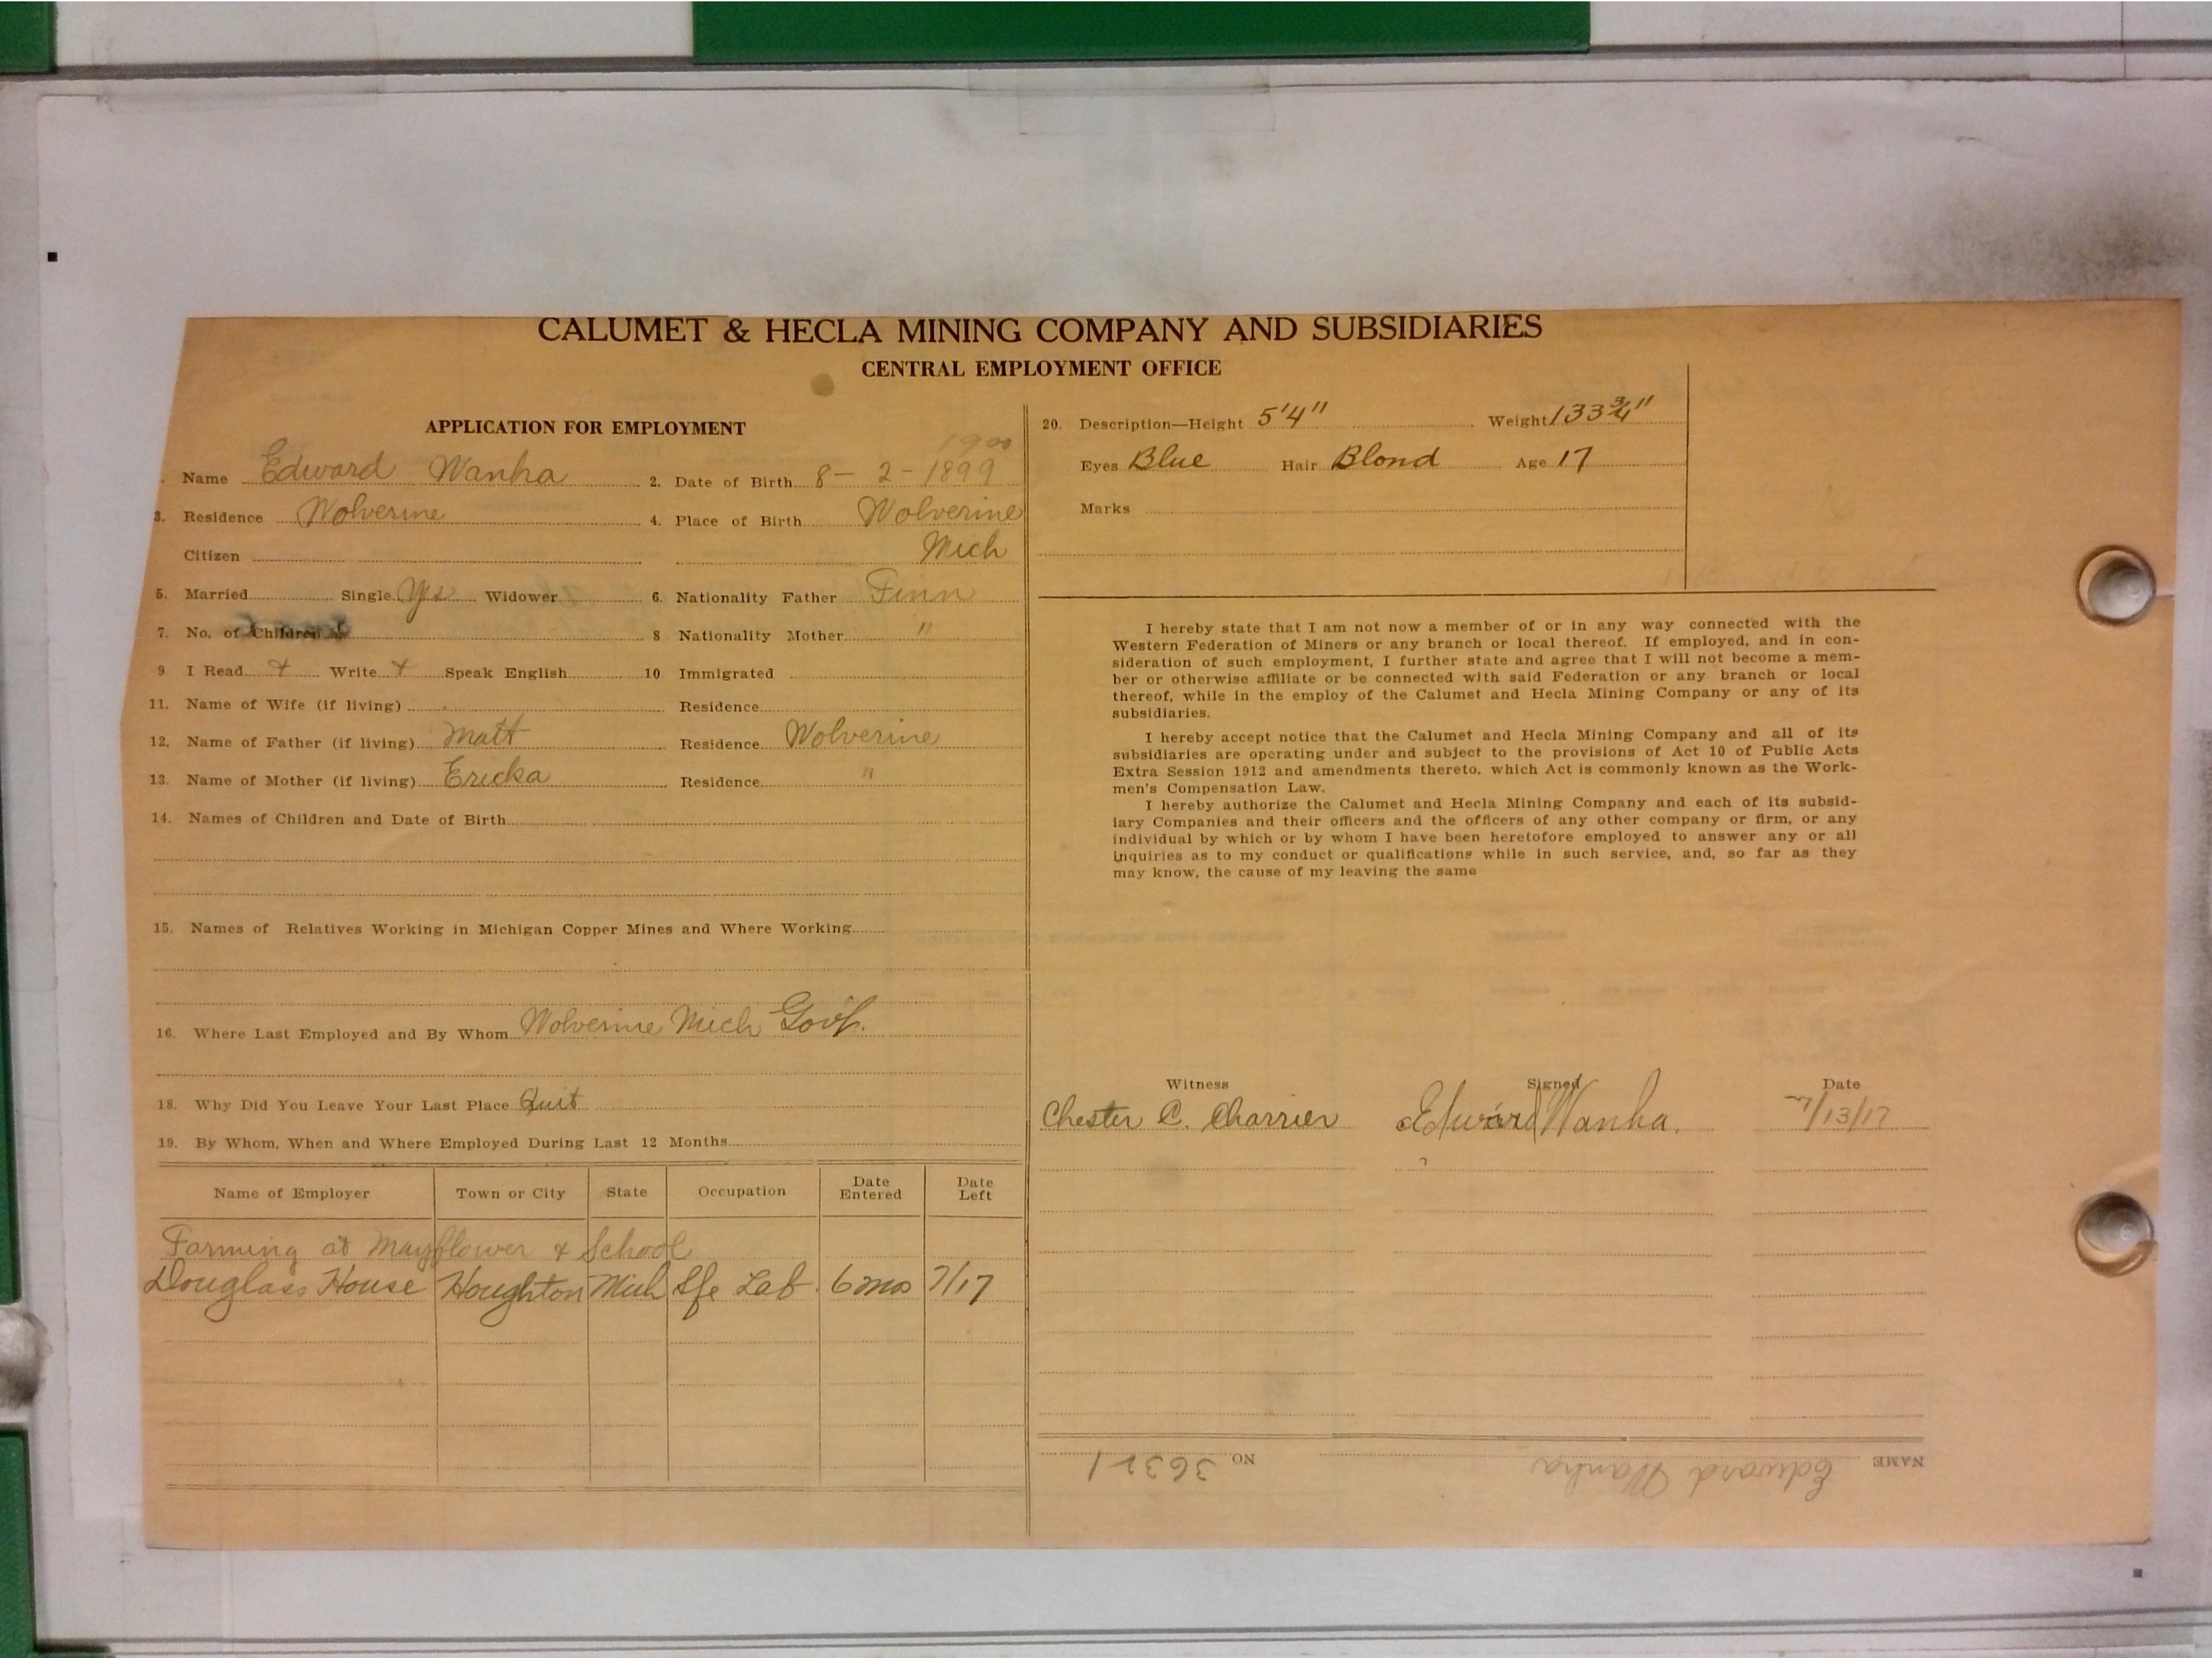 CALUMET & HECLA MINING COMPANY AND SUBSIDIARIES
CENTRAL EMPLOYMENT OFFICE
APPLICATION FOR EMPLOYMENT
1900
Name Edward Wanha 2. Date of Birth 8 - 2 - 1899
3. Residence Wolverine 4. Place of Birth Wolverine
Citizen Mich
5. Married Single Yes Widower 6. Nationality Father Finn
7. No. of Children 8 Nationality Mother "
9. I Read + Write + Speak English 10 Immigrated
11. Name of Wife (if living) Residence
12. Name of Father (if living) Matt Residence Wolverine
13. Name of Mother (if living) Ericka Residence "
14. Names of Children and Date of Birth
15. Names of Relatives Working in Michigan Copper Mines and Where Working
16. Where Last Employed and By Whom Wolverine Mich
18. Why Did You Leave Your Last Place Quit
19. By Whom, When and Where Employed During Last 12 Months
Name of Employer Town or City State Occupation Date Entered Date Left
Farming at Mayflower & School
Douglass House Houghton Mich Lab 6 mos 7/17
20. Description—Height 5'4" Weight 133 3/4"
Eyes Blue Hair Blond Age 17
Marks
I hereby state that I am not now a member of or in any way connected with the
Western Federation of Miners or any branch or local thereof. If employed, and in con-
sideration of such employment, I further state and agree that I will not become a mem-
ber or otherwise affiliate or be connected with said Federation or any branch or local
thereof, while in the employ of the Calumet and Hecla Mining Company or any of its
subsidiaries.
I hereby accept notice that the Calumet and Hecla Mining Company and all of its
subsidiaries are operating under and subject to the provisions of Act 10 of Public Acts
Extra Session 1912 and amendments thereto, which Act is commonly known as the Work-
men's Compensation Law.
I hereby authorize the Calumet and Hecla Mining Company and each of its subsid-
iary Companies and their officers and the officers of any other company or firm, or any
individual by which or by whom I have been heretofore employed to answer any or all
inquiries as to my conduct or qualifications while in such service, and, so far as they
may know, the cause of my leaving the same
Witness Signed Date
Chester C. Charrier Edward Wanha. 7/13/17
NAME Edward Wanha NO 36321